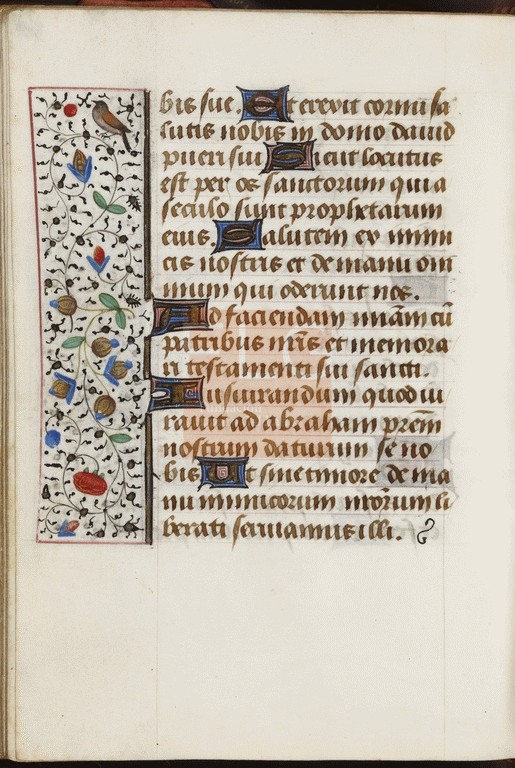 bis sue. Et erexit cornu sa
lutis nobis in domo dauid
pueri sui Sicut locutus
est per os sanctorum qui a
seculo sunt prophetarum
eius. Salutem ex inimi
cis nostris et de manu om
nium qui oderunt nos.
Ad faciendam miām cū
patribus nr̄is et memora
ri testamenti sui sancti.
Iusiurandum quod iu
rauit ad abraham prēm
nostrum daturum se no
bis Ut sine timore de ma
nu inimicorum nrōrum li
berati seruiamus illi.